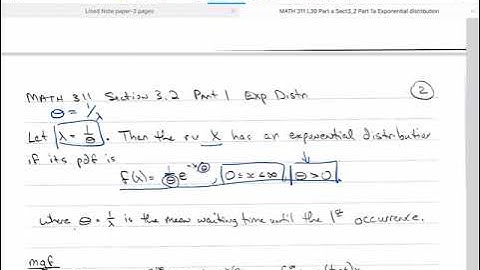 Lined Note paper-3 pages
MATH 311 L39 Part a Sect3_2 Part 1a Exponential distribution
MATH 311 Section 3.2 Part 1 Exp Distn
②
θ = 1/λ
Let λ = 1/θ. Then the rv X has an exponential distribution
if its pdf is
f(x) = 1/θ e^(-x/θ), 0 ≤ x < ∞, θ > 0
where θ = 1/λ is the mean waiting time until the 1st occurrence.
mgf